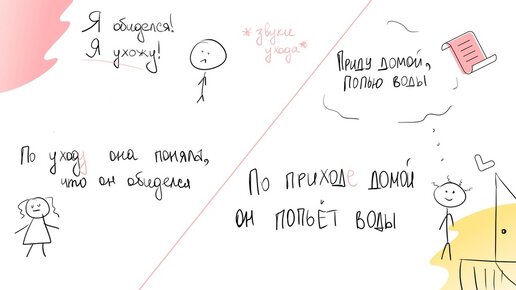 Я обиделся!
Я ухожу!
*звуки
ухода*
По уходу она поняла,
что он обиделся
Приду домой,
попью воды
По приходе домой
он попьёт воды